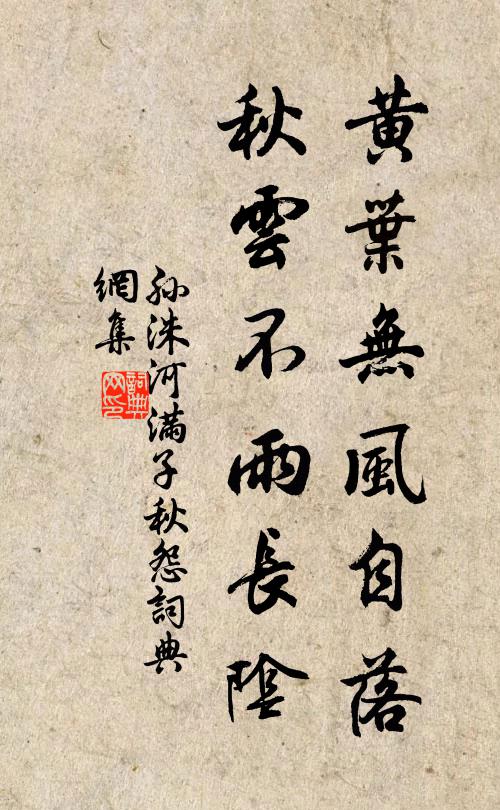 黃葉無風自落
秋雲不雨長陰
孫洙河滿子秋怨詞典
網集
詞典
网印